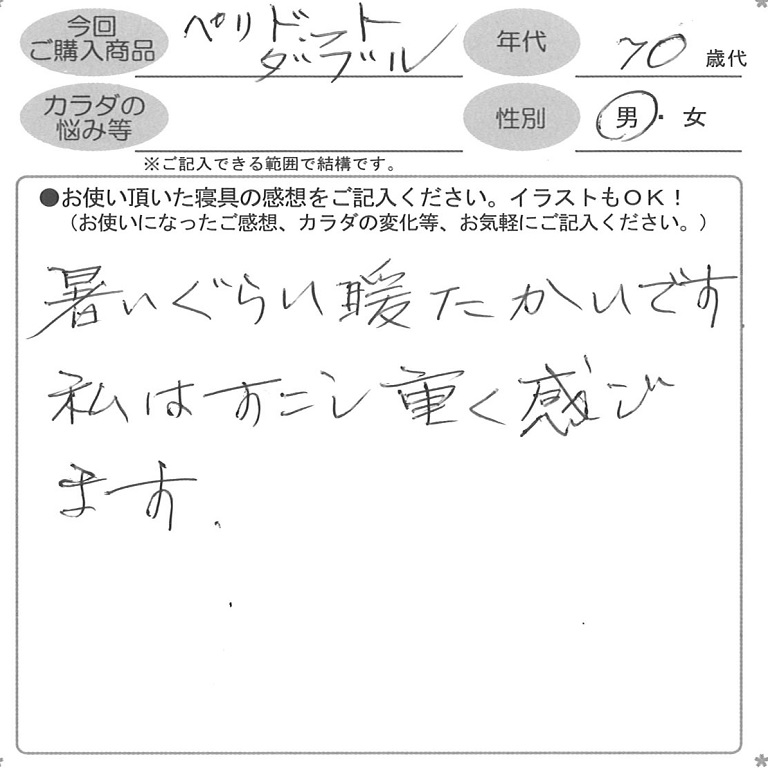 今回
ご購入商品
ペリドット
ダブル
年代
70 歳代
カラダの
悩み等
性別
男・女
※ご記入できる範囲で結構です。
●お使い頂いた寝具の感想をご記入ください。イラストもOK！
（お使いになったご感想、カラダの変化等、お気軽にご記入ください。）
暑いぐらい暖たかいです
私はすこし重く感じ
ます.